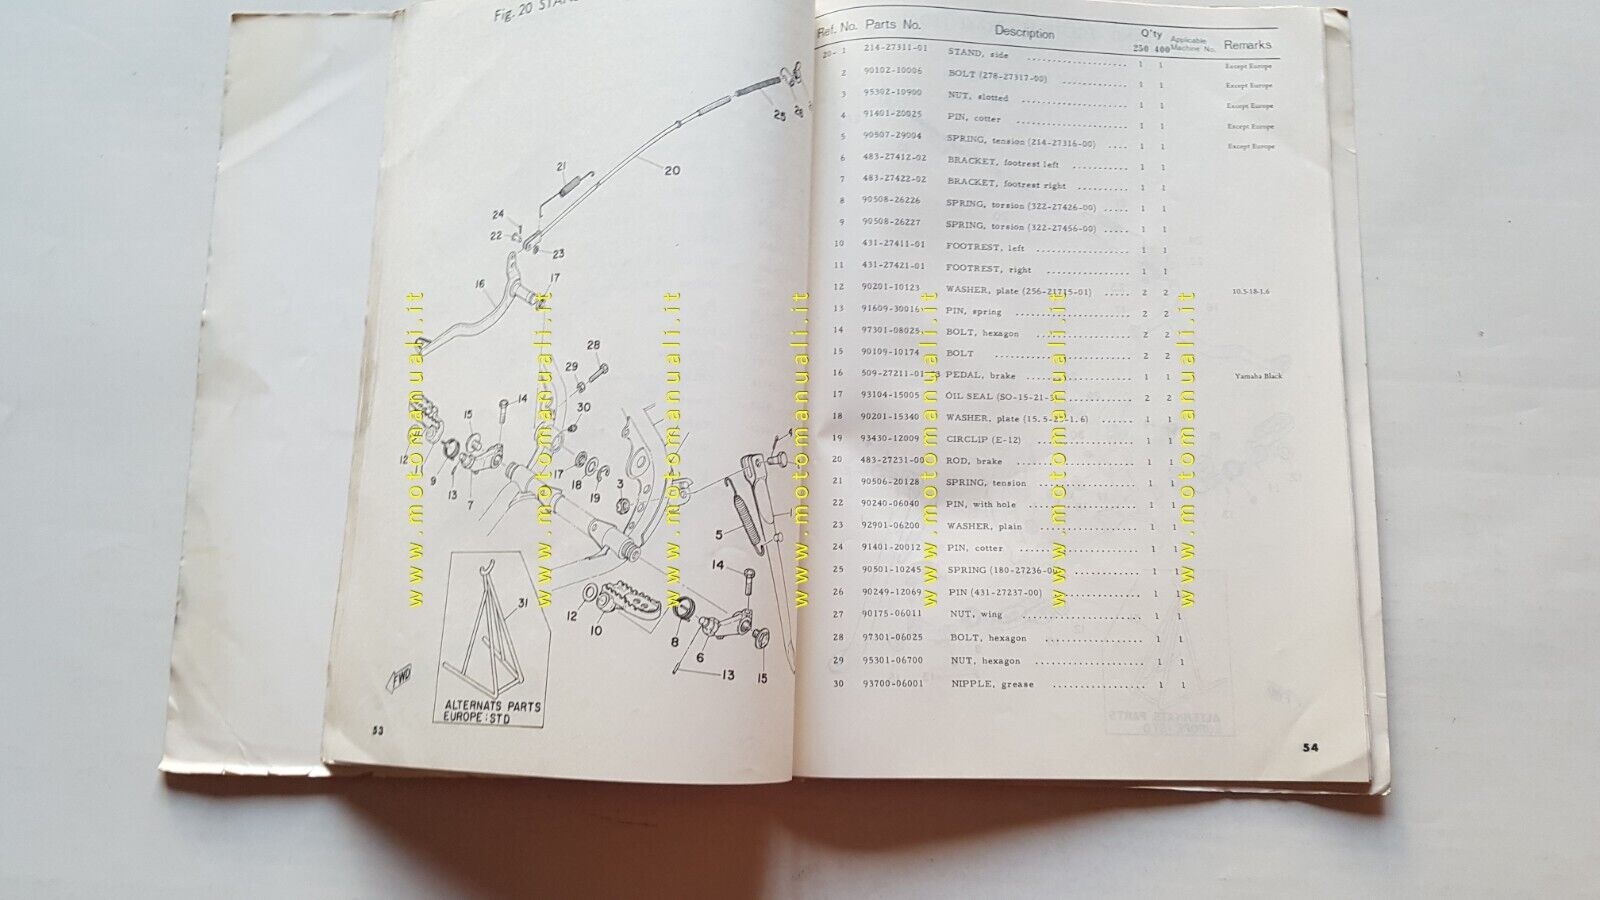 Fig. 20
21
20
25
24
22
23
16
17
28
29
14
30
15
12
9
13
7
17
18
19
3
4
5
14
31
12
10
8
6
13
15
FWD
ALTERNATS PARTS
EUROPE:STD
53
Ref. No. Parts No. Description Q'ty 250 400 Applicable Machine No. Remarks
20- 1 214-27311-01 STAND, side 1 1 Except Europe
2 90102-10006 BOLT (278-27317-00) 1 1 Except Europe
3 95302-10900 NUT, slotted 1 1 Except Europe
4 91401-20025 PIN, cotter 1 1 Except Europe
5 90507-29004 SPRING, tension (214-27316-00) 1 1 Except Europe
6 483-27412-02 BRACKET, footrest left 1 1
7 483-27422-02 BRACKET, footrest right 1 1
8 90508-26226 SPRING, torsion (322-27426-00) 1 1
9 90508-26227 SPRING, torsion (322-27456-00) 1 1
10 431-27411-01 FOOTREST, left 1 1
11 431-27421-01 FOOTREST, right 1 1
12 90201-10123 WASHER, plate (256-21715-01) 2 2 10.5-18-1.6
13 91609-30016 PIN, spring 2 2
14 97301-08025 BOLT, hexagon 2 2
15 90109-10174 BOLT 2 2
16 509-27211-01 PEDAL, brake 1 1 Yamaha Black
17 93104-15005 OIL SEAL 2 2
18 90201-15340 WASHER, plate 1 1
19 93430-12009 CIRCLIP (E-12) 1 1
20 483-27231-00 ROD, brake 1 1
21 90506-20128 SPRING, tension 1 1
22 90240-06040 PIN, with hole 1 1
23 92901-06200 WASHER, plain 1 1
24 91401-20012 PIN, cotter 1 1
25 90501-10245 SPRING (180-27236-00) 1 1
26 90249-12069 PIN (431-27237-00) 1 1
27 90175-06011 NUT, wing 1 1
28 97301-06025 BOLT, hexagon 1 1
29 95301-06700 NUT, hexagon 1 1
30 93700-06001 NIPPLE, grease 1 1
54
www.motomanuali.it
www.motomanuali.it
www.motomanuali.it
www.motomanuali.it
www.motomanuali.it
www.motomanuali.it
www.motomanuali.it